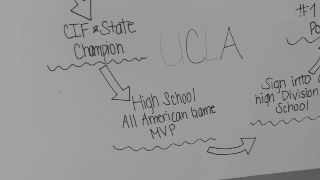 CIF & State
Champion
UCLA
High School
All American Game
MVP
#1
Sign into
high Division
School